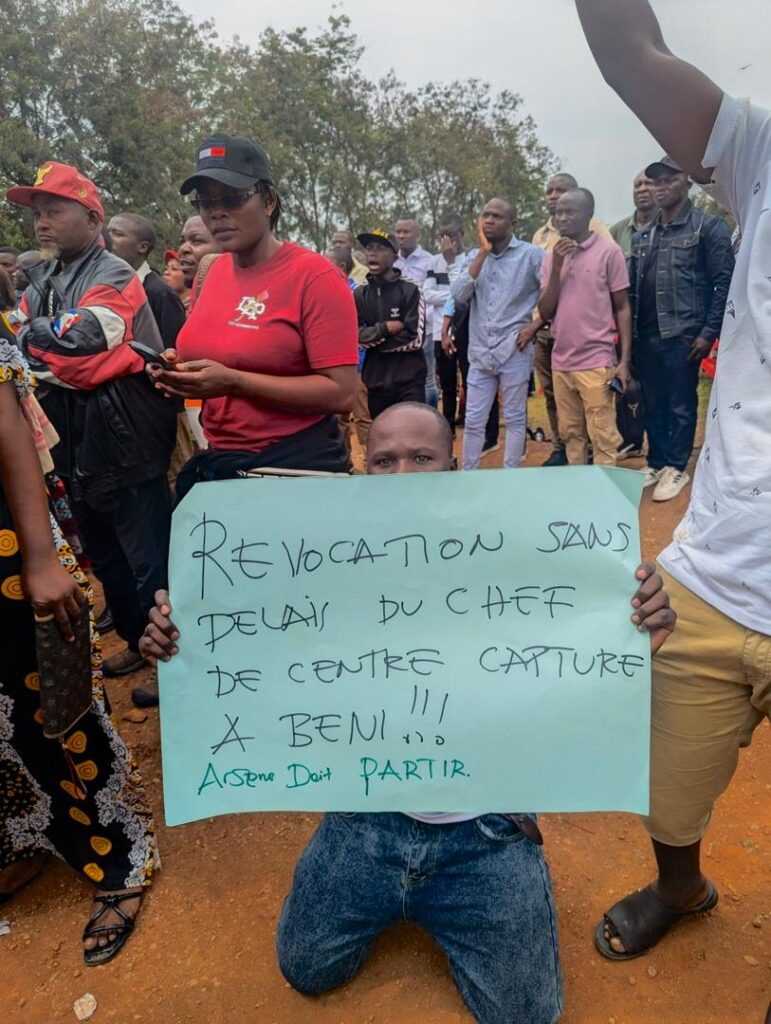 REVOCATION SANS
DELAIS DU CHEF
DE CENTRE CAPTURE
A BENI !!!
Arsene Doit PARTIR.